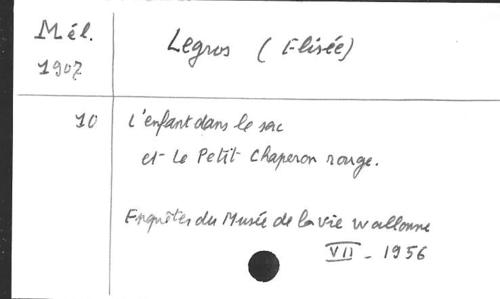 Mél.
1907
Legros (Elisée)
10
L'enfant dans le sac
et Le Petit Chaperon rouge.
Enquêtes du Musée de la vie wallonne
VII - 1956